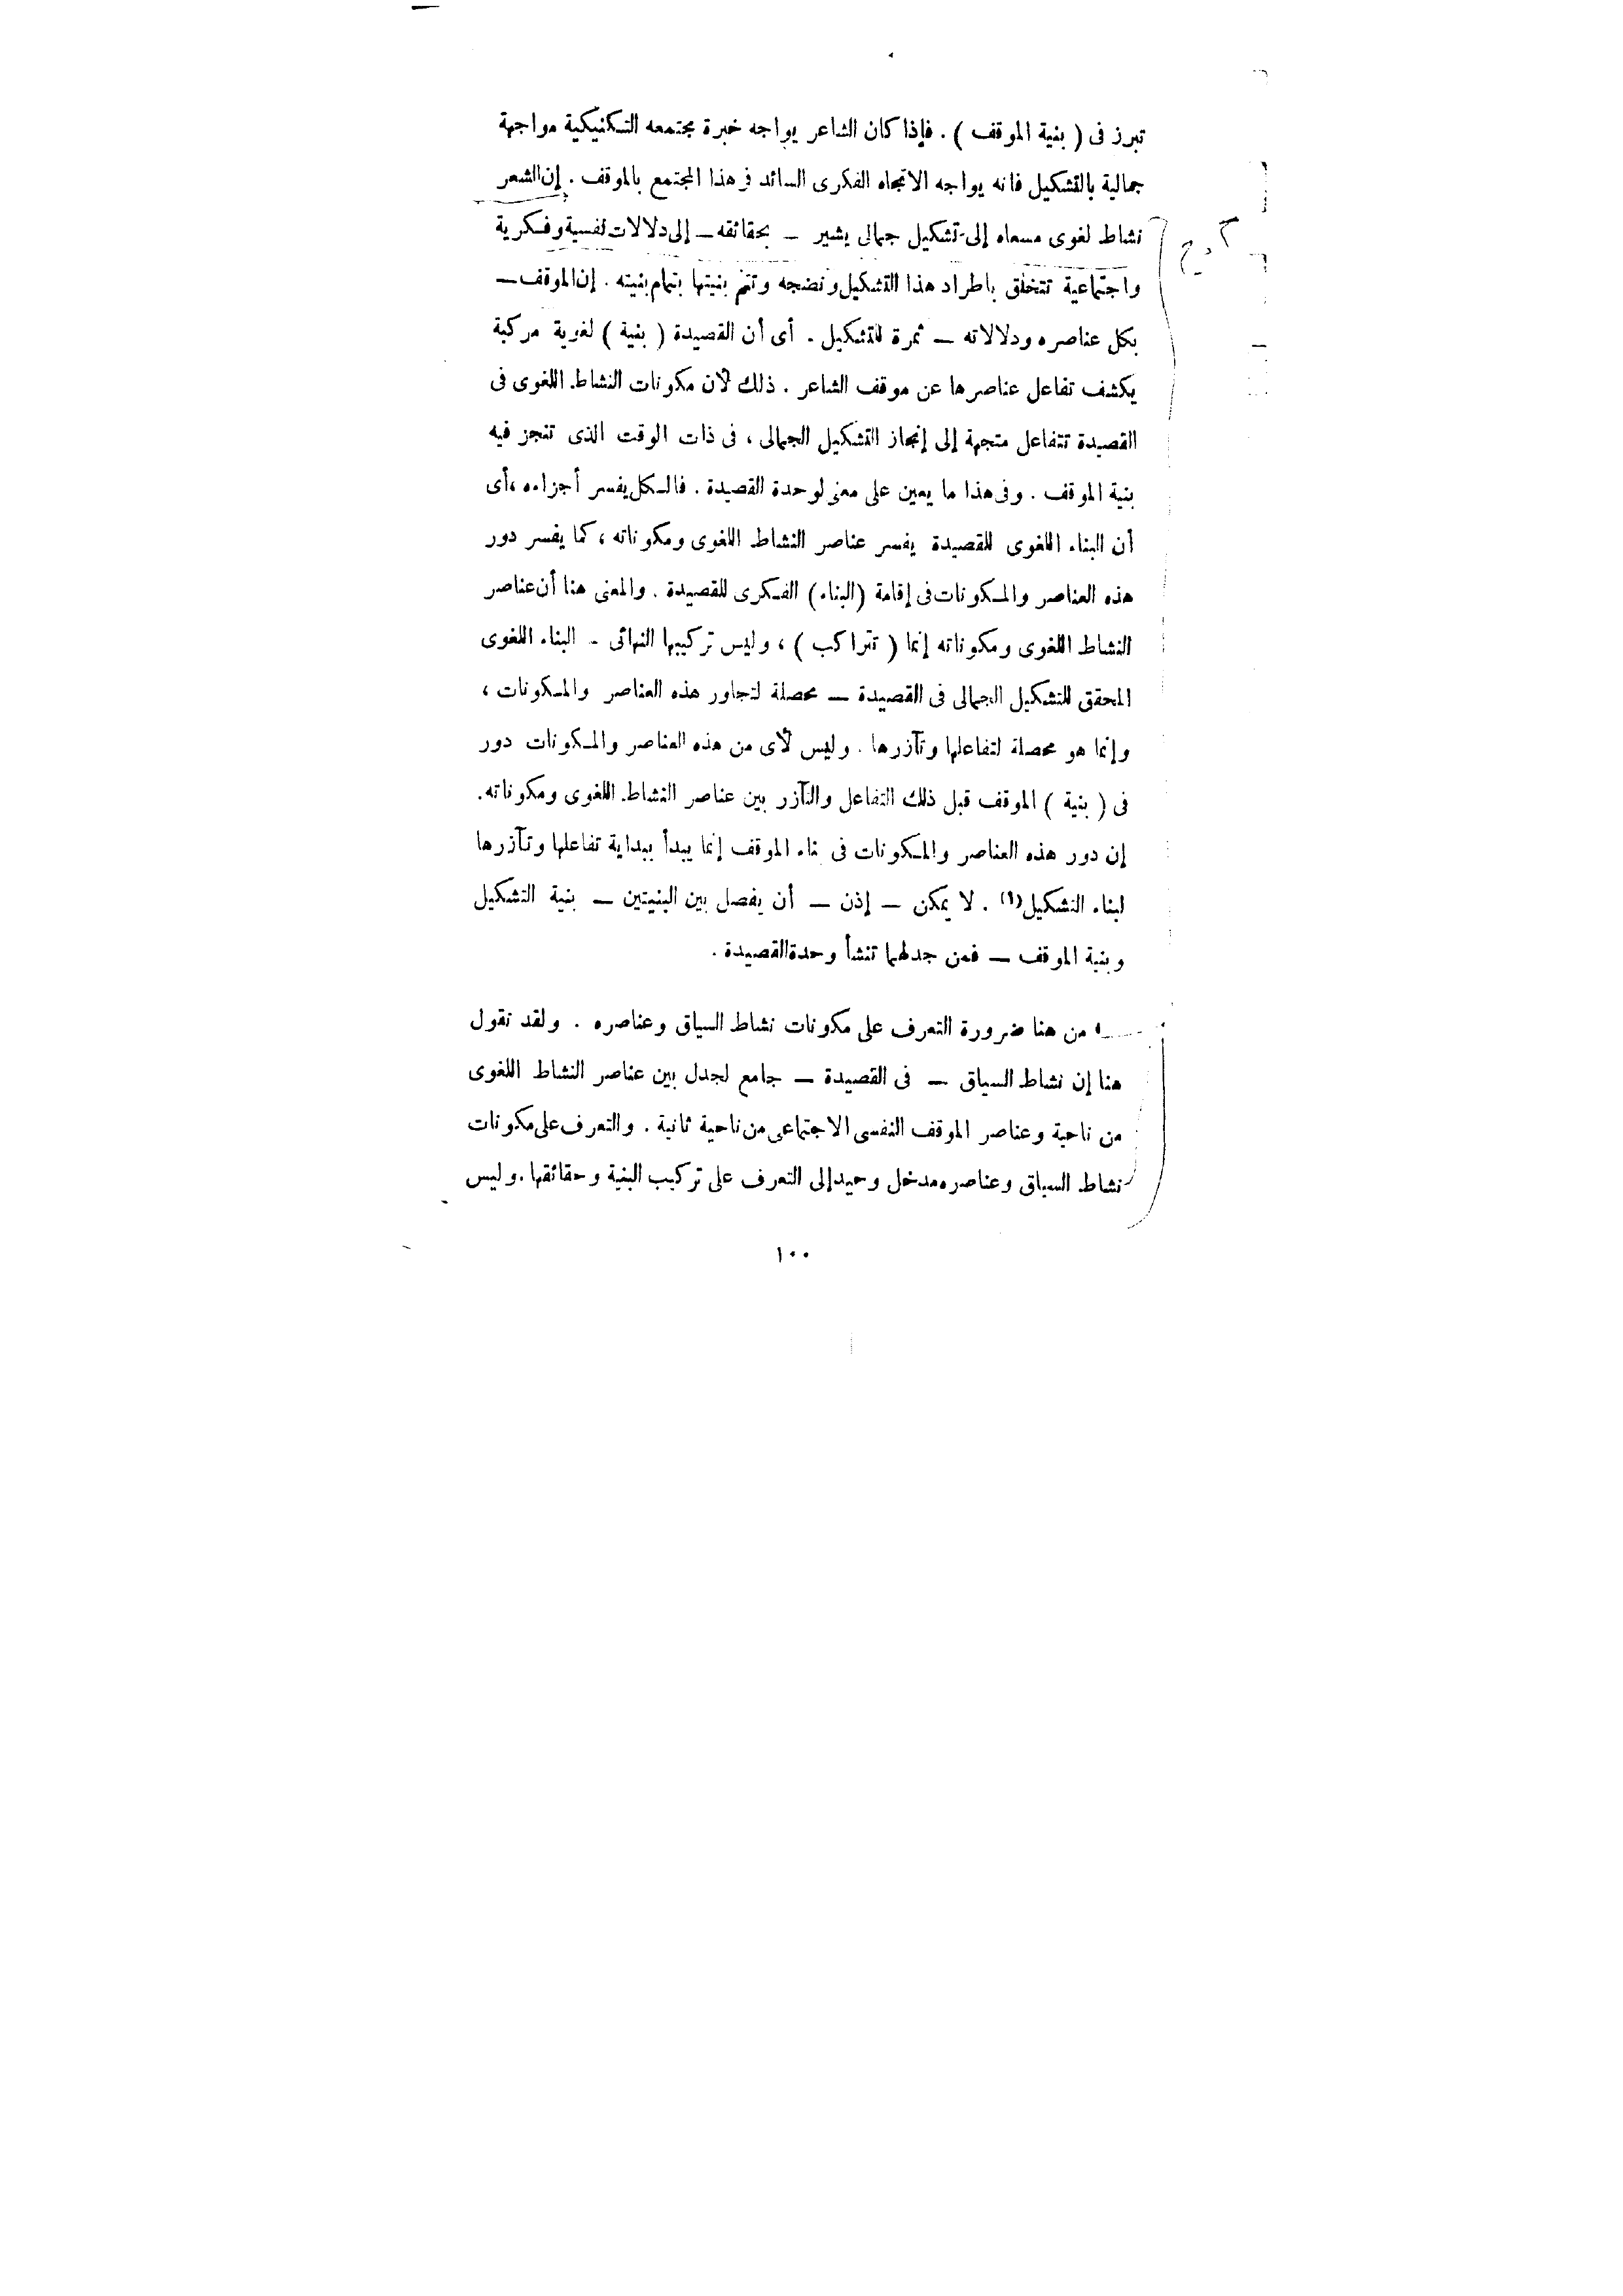 تبرز فى ( بنية الموقف ) . فإذا كان الشاعر يواجه خبرة مجتمعه التكنيكية مواجهة
جمالية بالتشكيل فانه يواجه الاتجاه الفكرى السائد فى هذا المجتمع بالموقف . إن الشعر
نشاط لغوى مسعاه إلى تشكيل جمالى يشير – بحقائقه – إلى دلالات نفسية وفكرية
واجتماعية تتخلق باطراد هذا التشكيل ونضجه وتتم بنيتها بتمام بنيته . إن الموقف –
بكل عناصره ودلالاته – ثمرة للتشكيل . أى أن القصيدة ( بنية ) لغوية مركبة
يكشف تفاعل عناصرها عن موقف الشاعر . ذلك لأن مكونات النشاط اللغوى فى
القصيدة تتفاعل متجهة إلى إنجاز التشكيل الجمالى ، فى ذات الوقت الذى تنجز فيه
بنية الموقف . وفى هذا ما يعين على معنى لوحدة القصيدة . فالكل يفسر أجزاءه ، أى
أن البناء اللغوى للقصيدة يفسر عناصر النشاط اللغوى ومكوناته ، كما يفسر دور
هذه العناصر والمكونات فى إقامة (البناء) الفكرى للقصيدة . والمعنى هنا أن عناصر
النشاط اللغوى ومكوناته إنما ( تتراكب ) ، وليس تركيبها النهائى – البناء اللغوى
المحقق للتشكيل الجمالى فى القصيدة – محصلة لتجاور هذه العناصر والمكونات ،
وإنما هو محصلة لتفاعلها وتآزرها . وليس لأى من هذه العناصر والمكونات دور
فى ( بنية ) الموقف قبل ذلك التفاعل والتآزر بين عناصر النشاط اللغوى ومكوناته.
إن دور هذه العناصر والمكونات فى بناء الموقف إنما يبدأ ببداية تفاعلها وتآزرها
لبناء التشكيل(١) . لا يمكن – إذن – أن يفصل بين البنيتين – بنية التشكيل
وبنية الموقف – فمن جدلهما تنشأ وحدة القصيدة .
من هنا ضرورة التعرف على مكونات نشاط السياق وعناصره . ولقد نقول
هنا إن نشاط السياق – فى القصيدة – جامع لجدل بين عناصر النشاط اللغوى
من ناحية وعناصر الموقف النفسى الاجتماعى من ناحية ثانية . والتعرف على مكونات
نشاط السياق وعناصره مدخل وحيد إلى التعرف على تركيب البنية وحقائقها . وليس
١٠٠